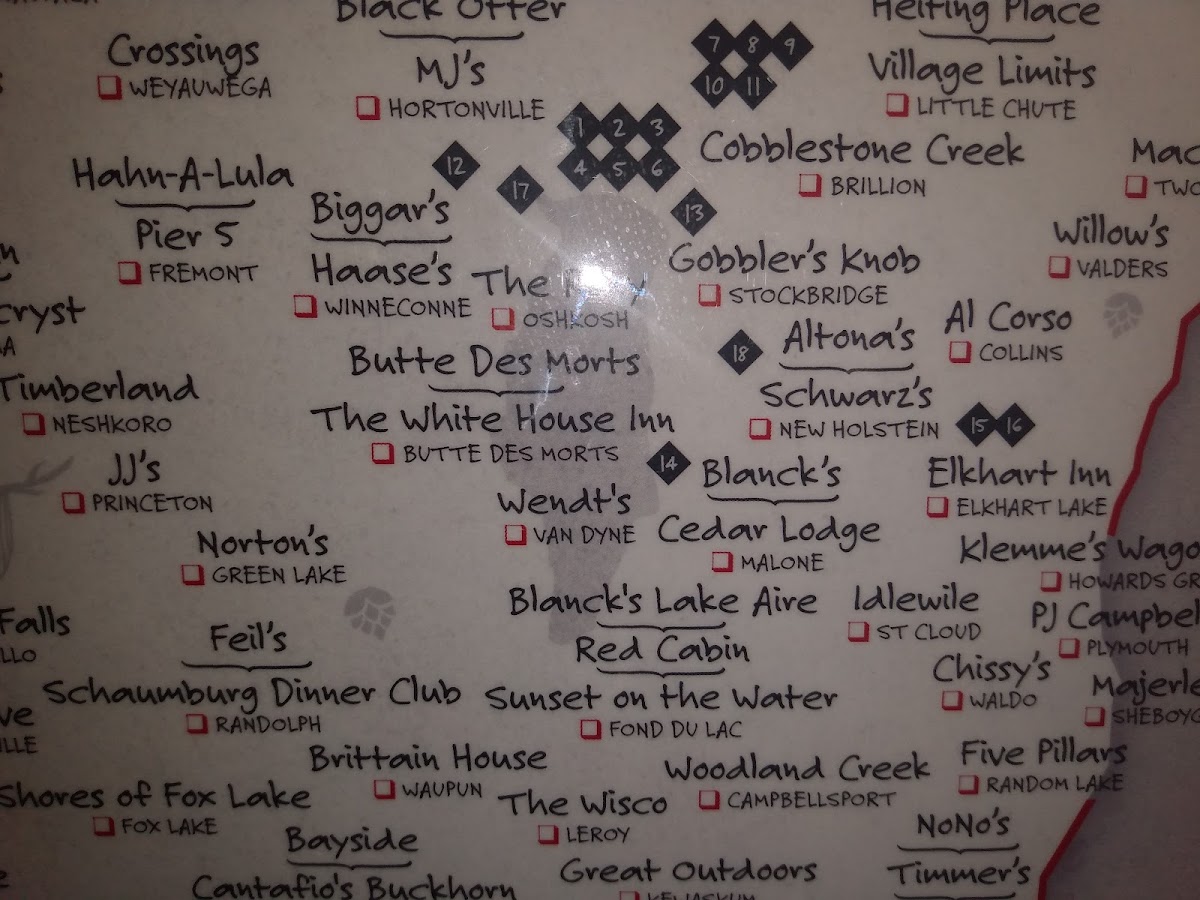 Black Otter
Helting Place
7 8 9
Crossings
WEYAUWEGA
MJ's
HORTONVILLE
10 11
Village Limits
LITTLE CHUTE
1 2 3
4 5 6
Cobblestone Creek
BRILLION
12
17
13
Hahn-A-Lula
Pier 5
FREMONT
Biggar's
Haase's
WINNECONNE
The
OSHKOSH
Gobbler's Knob
STOCKBRIDGE
Willow's
VALDERS
18
Altona's
Schwarz's
NEW HOLSTEIN
Al Corso
COLLINS
Butte Des Morts
The White House Inn
BUTTE DES MORTS
Timberland
NESHKORO
15 16
14
JJ's
PRINCETON
Wendt's
VAN DYNE
Blanck's
Cedar Lodge
MALONE
Elkhart Inn
ELKHART LAKE
Norton's
GREEN LAKE
Klemme's Wago
HOWARDS GR
Blanck's Lake Aire
Red Cabin
Sunset on the Water
FOND DU LAC
Idlewile
ST CLOUD
PJ Campbel
PLYMOUTH
Falls
LLO
Feil's
Schaumburg Dinner Club
RANDOLPH
Chissy's
WALDO
Majerle
SHEBOYG
Brittain House
WAUPUN
Woodland Creek
CAMPBELLSPORT
Five Pillars
RANDOM LAKE
Shores of Fox Lake
FOX LAKE
The Wisco
LEROY
Bayside
Cantafio's Buckhorn
Great Outdoors
KEWASKUM
NoNo's
Timmer's